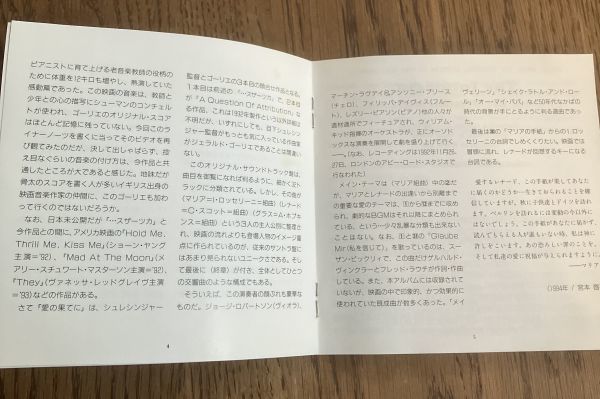 ピアニストに育て上げる老音楽教師の役柄の
ために体重を12キロも増やし、熱演していた
感動篇であった。この映画の音楽は、教師と
少年との心の描写にシューマンのコンチェル
トが使われ、ゴーリエのオリジナル・スコア
はほとんど記憶に残っていない。今回このラ
イナーノーツを書くに当ってそのビデオを再
び観てみたのだが、決して出しゃばらず、控
え目なぐらいの音楽の付け方は、今作品と共
通したところが大であると感じた。地味だが
骨太のスコアを書く人が多いイギリス出身の
映画音楽作家の仲間に、このゴーリエも加わ
って行くのではないだろうか。
なお、日本未公開だが「…スザーツカ」と
今作品との間に、アメリカ映画の「Hold Me,
Thrill Me, Kiss Me」(ショーン・ヤング
主演='92)、「Mad At The Moon」(メ
アリー・スチュワート・マスターソン主演='92)、
「They」(ヴァネッサ・レッドグレイヴ主演
='93)などの作品がある。
さて「愛の果てに」は、シュレシンジャー
4
監督とゴーリエの3本目の顔合せ作品となる。
1本目は前述の「…スザーツカ」で、2本目
が「A Question Of Attribution」な
る作品、これは1992年製作という以外詳細は
不明だが、いずれにしても、目下シュレシン
ジャー監督がもっとも気に入っている作曲家
がジェラルド・ゴーリエであることは間違い
ない。
このオリジナル・サウンドトラック盤は、
曲目を御覧になれば判るように、細かく22ト
ラックに分類されている。しかし、その曲が
〈マリア=ロッセリーニ=組曲〉〈レナード
=C・スコット=組曲〉〈グラス=A・ホプキ
ンス=組曲〉という3人の主人公別に整理さ
れ、映画の流れよりも登場人物のイメージ重
点に作られているのが、従来のサントラ盤に
はあまり見られないユニークさである。そし
て最後に〈終章〉が付き、全体としてひとつ
の交響曲のような構成でもある。
そういえば、この演奏者の顔ぶれも豪華な
ものだ。ジョージ・ロバートソン(ヴィオラ)、
マーチン・ラヴデイ&アンソニー・プリース
(チェロ)、フィリッパ・デイヴィス(フルー
ト)、レズリー・ピアソン(ピアノ)他の人々が
適材適所でフィーチュアされ、ウィリアム・
キッド指揮のオーケストラが、正にオーソド
ックスな演奏を展開して劇を盛り上げて行く
──。(なお、レコーディングは1992年11月25、
27日、ロンドンのアビー・ロード・スタジオで
行なわれた)
メイン・テーマは〈マリア組曲〉中の④だ
が、マリアとレナードの出逢いから離別まで
の重要な愛のテーマは、
き、劇的なBGMはそれ以降にまとめられ
ている、という一少々乱暴な分類も出来ない
ことはない。なお、
Mir(私を信じて)」を歌っているのは、スー
ザン・ビックリィで、この曲だけゲルハルド・
ヴィンクラーとフレッド・ラウチが作詞・作曲
している。また、本アルバムには収録されて
いないが、映画の中で印象的、かつ効果的に
使われていた既成曲が数多くあった。「メイ
5
ヴェリーン」「シェイク・ラトル・アンド・ロー
ル」「オー・マイ・パパ」など50年代なかばの
時代の背景が手にとるように判る選曲であっ
た。
ロッセリーニの台詞でしめくくりたい。映画では
冒頭に流れ、レナードが回想するキーになる
台詞である。
愛するレナード、この手紙があなたに